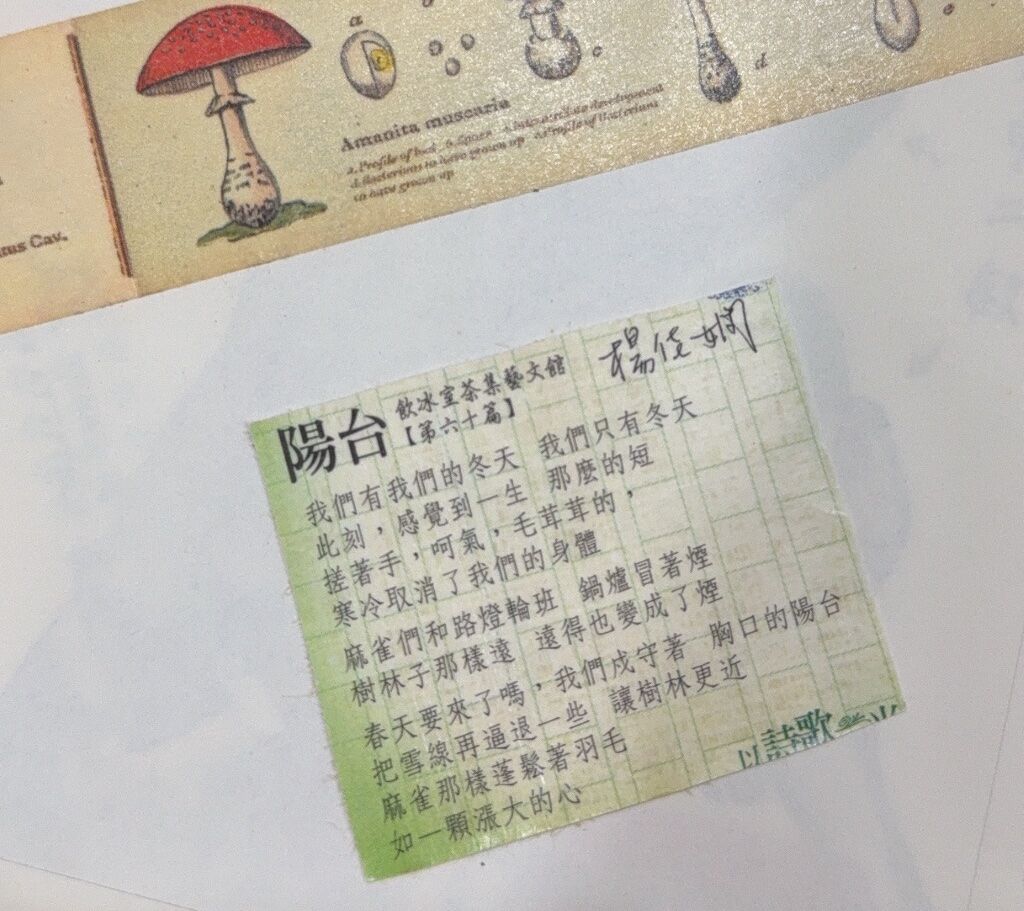 a
c
d
Amanita muscaria
a. Profile of bud
to have grown up
tus Cav.
楊佳嫻
陽台
飲冰室茶集藝文館
【第六十篇】
我們有我們的冬天 我們只有冬天
此刻,感覺到一生 那麼的短
搓著手,呵氣,毛茸茸的,
寒冷取消了我們的身體
麻雀們和路燈輪班 鍋爐冒著煙
樹林子那樣遠 遠得也變成了煙
春天要來了嗎,我們戍守著 胸口的陽台
把雪線再逼退一些 讓樹林更近
麻雀那樣蓬鬆著羽毛
如一顆漲大的心
以詩歌